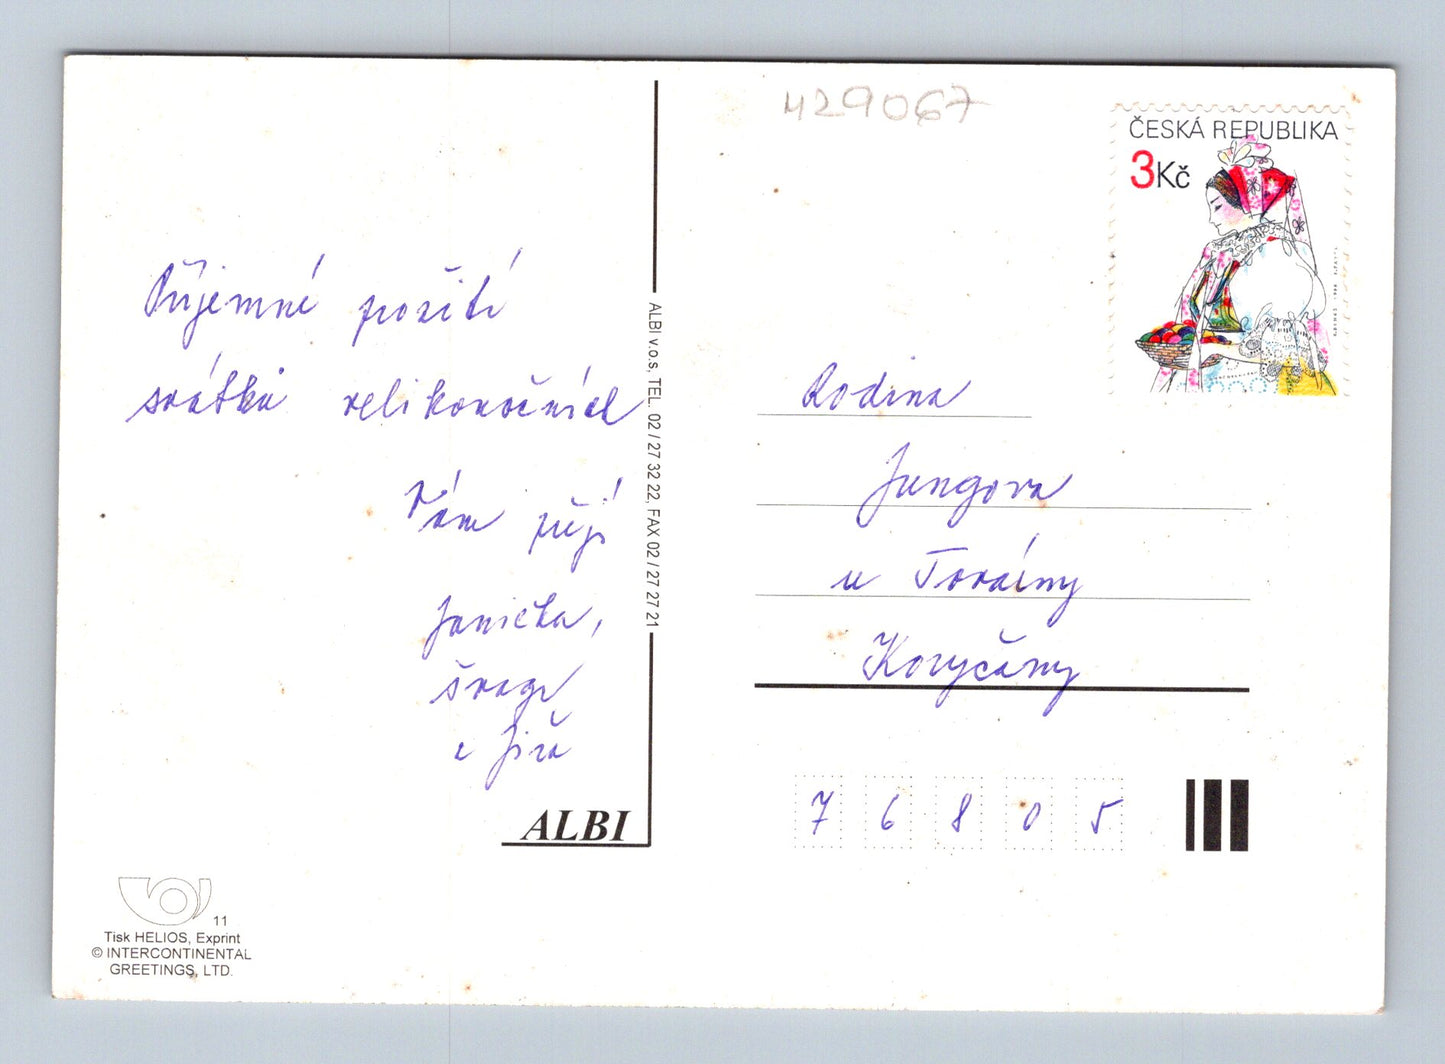 429067
ČESKÁ REPUBLIKA
3Kč
Příjemné požití
svátků velikonočních
Vám přejí
Janička,
a Jiří
ALBI v.o.s, TEL. 02 / 27 32 22, FAX 02 / 27 27 21
ALBI
Rodina
Jungova
u Továrny
Koryčany
7 6 8 0 5
11
Tisk HELIOS, Exprint
© INTERCONTINENTAL
GREETINGS, LTD.